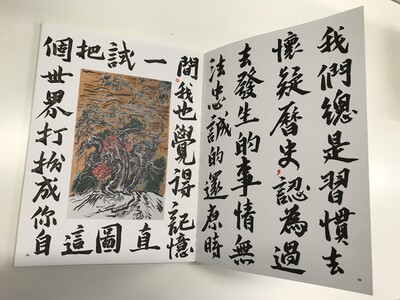 我們總是習慣去
懷疑曆史,認為過
去發生的事情無
法忠誠的還原時
間,我也覺得記憶
一直
試圖
把這
個世界打扮成你自